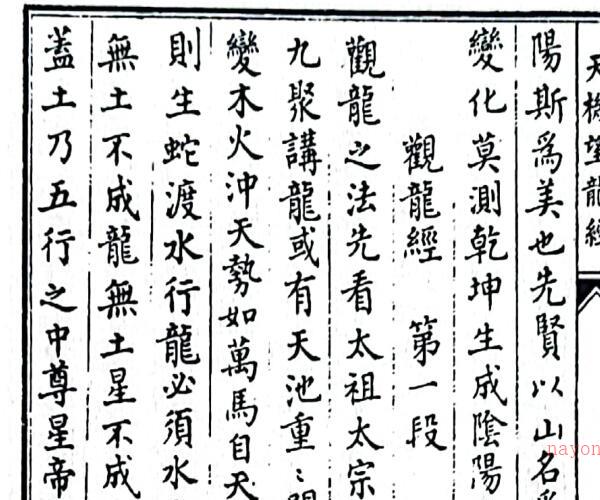 天機望龍經
陽斯爲美也先賢以山名
變化莫測乾坤生成陰陽
觀龍經 第一段
觀龍之法先看太祖太宗
九聚講龍或有天池重〻
變木火沖天勢如萬馬自天
則生蛇渡水行龍必須水
無土不成龍無土星不成
蓋土乃五行之中尊星帝
nayon